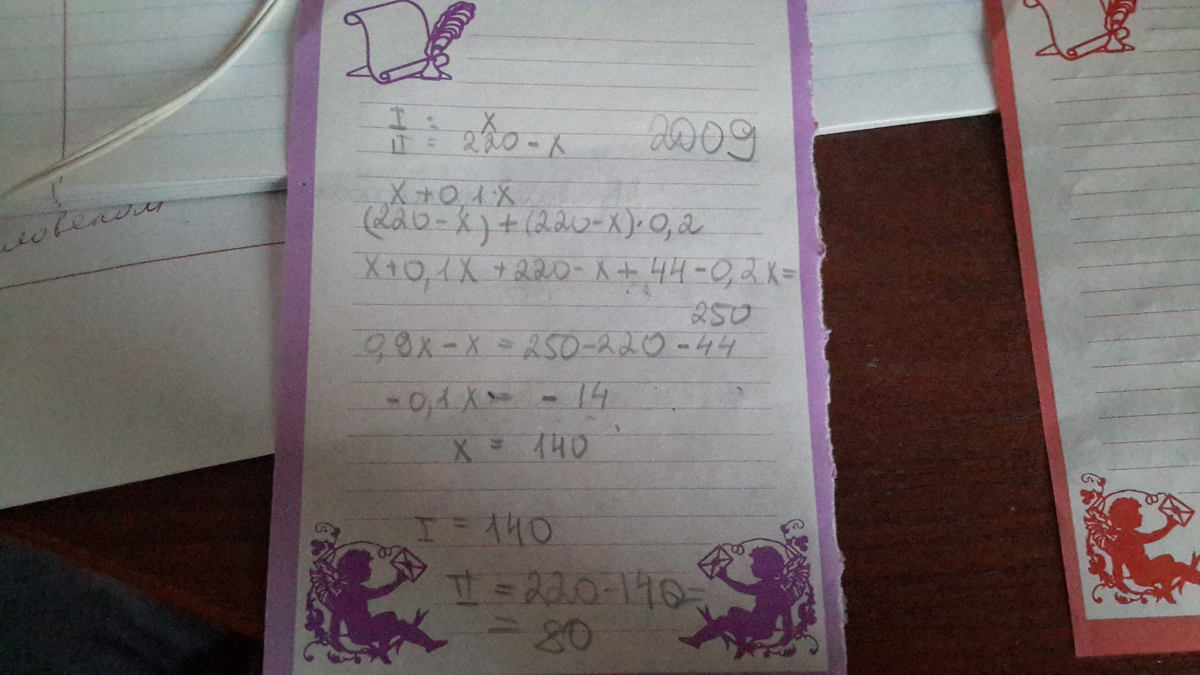 I = x
II = 220 - x 2009
x + 0,1·x
(220-x) + (220-x)·0,2
x+0,1x +220-x+ 44-0,2x=
250
0,9x - x = 250-220-44
-0,1x = - 14
x = 140
I = 140
II = 220-140=
= 80
ловеком